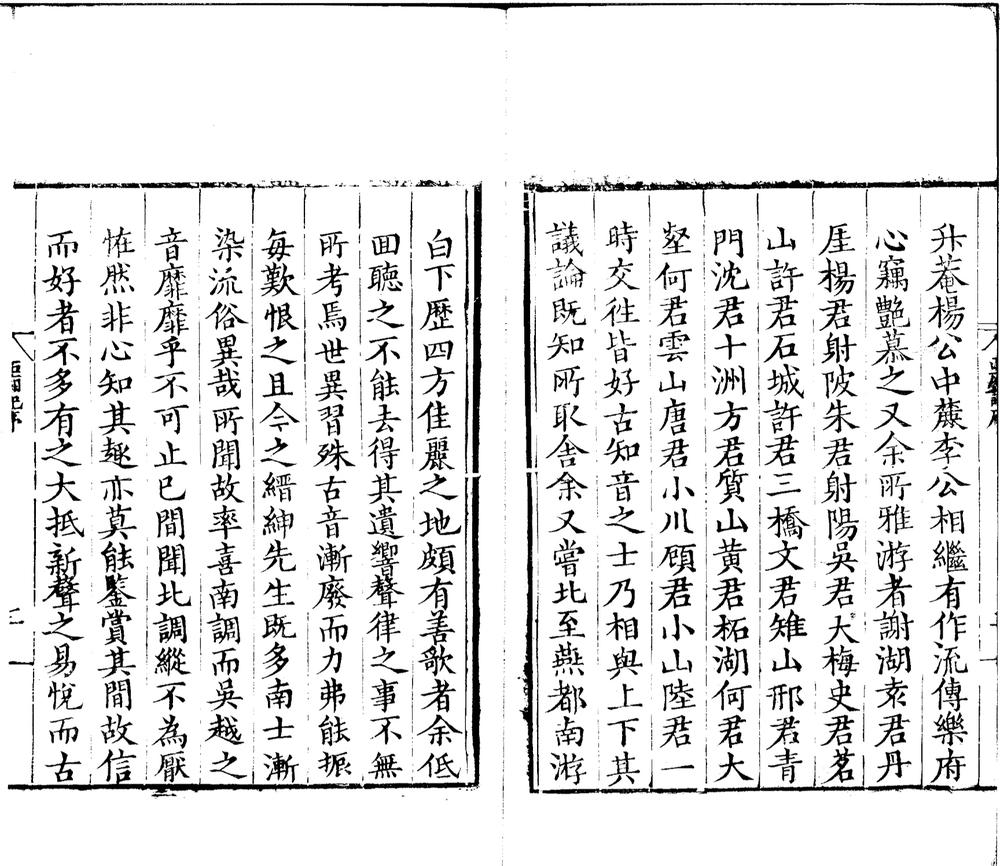 升菴楊公中麓李公相繼有作流傳樂府
心竊艷慕之又余所雅游者謝湖袁君丹
厓楊君射陂朱君射陽吳君大梅史君茗
山許君石城許君三橋文君雉山邢君青
門沈君十洲方君質山黃君柘湖何君大
壑何君雲山唐君小川顧君小山陸君一
時交徃皆好古知音之士乃相與上下其
議論既知所取舍余又嘗北至燕都南游
白下歷四方佳麗之地頗有善歌者余低
囬聽之不能去得其遺響聲律之事不無
所考焉世異習殊古音漸廢而力弗能振
每歎恨之且今之縉紳先生既多南士漸
染流俗異哉所聞故率喜南調而吳越之
音靡靡乎不可止已間聞北調縱不為厭
恠然非心知其趣亦莫能鑒賞其間故信
而好者不多有之大抵新聲之易悅而古